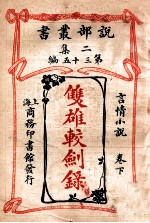 說部叢書
二集
第三十五編
言情小說
卷下
雙雄較劍錄
上海
商務印書館發行